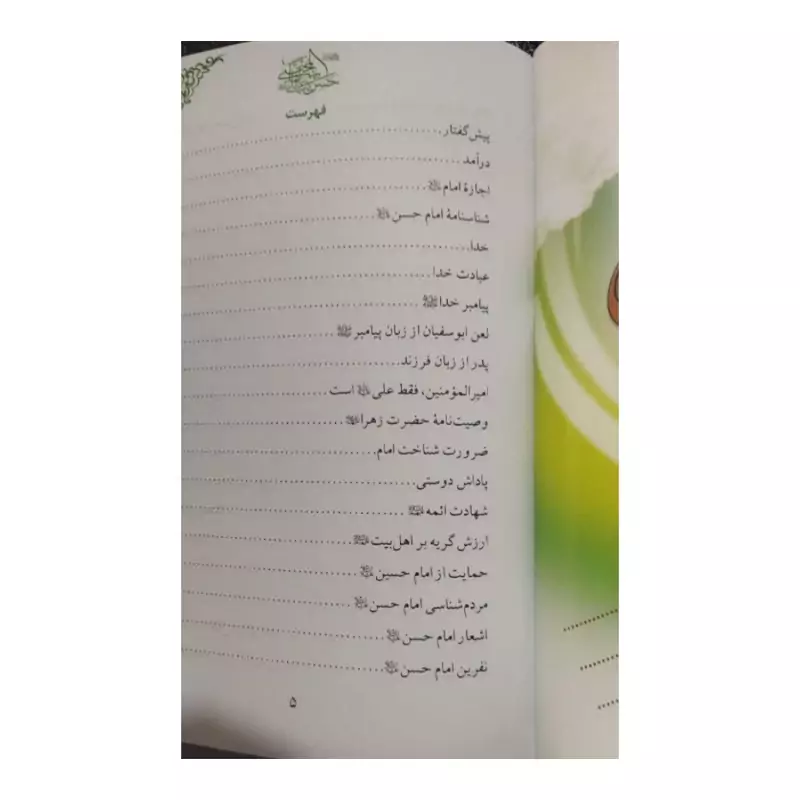 فهرست
پیش‌گفتار
درآمد
اجازهٔ امام
شناسنامهٔ امام حسن
خدا
عبادت خدا
پیامبر خدا ﷺ
لعن ابوسفیان از زبان پیامبر ﷺ
پدر از زبان فرزند
امیرالمؤمنین، فقط علی است
وصیت‌نامهٔ حضرت زهرا
ضرورت شناخت امام
پاداش دوستی
شهادت ائمه
ارزش گریه بر اهل‌بیت
حمایت از امام حسین
مردم‌شناسی امام حسن
اشعار امام حسن
نفرین امام حسن
۵